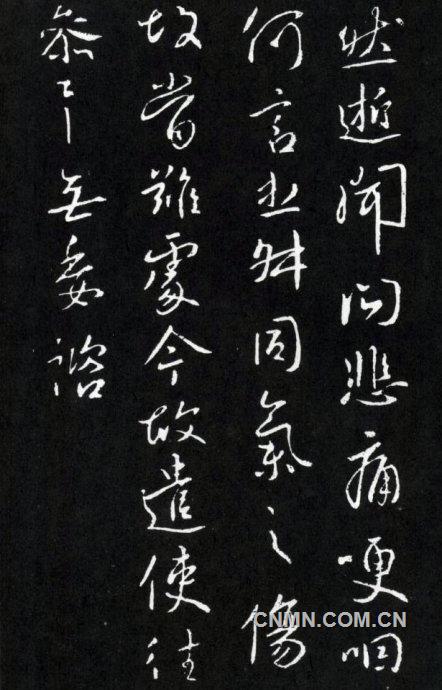 然逝聞問悲痛哽咽
何言同氣之傷
故當難處今故遣使往
參無委諮
CNMN.COM.CN